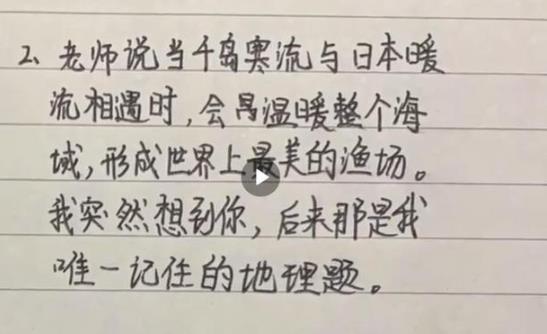 2、老师说当千岛寒流与日本暖
流相遇时,会温暖整个海
域,形成世界上最美的渔场。
我突然想到你,后来那是我
唯一记住的地理题。